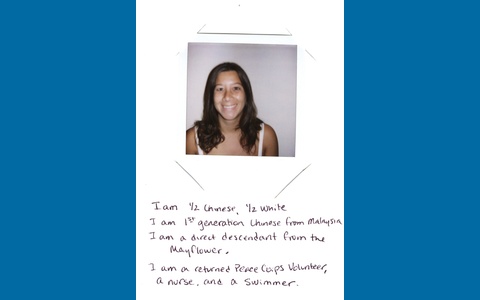 I am 1/2 Chinese, 1/2 White
I am 1st generation Chinese from Malaysia
I am a direct descendant from the
Mayflower.
I am a returned Peace Corps Volunteer,
a nurse, and a Swimmer.